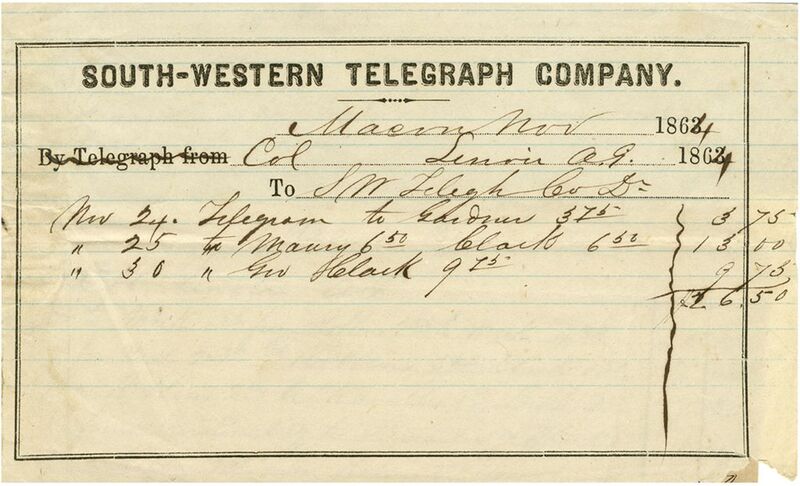 SOUTH-WESTERN TELEGRAPH COMPANY.
Macon Nov 1864
By Telegraph from Col Lenoir A.G. 1864
To S W Telegh Co Dr
Nov 24. Telegram to Gardner 3 75 3 75
" 25 " Maury 6 50 Clark 6 50 13 00
" 30 " Gov Clark 9 75 9 75
26.50